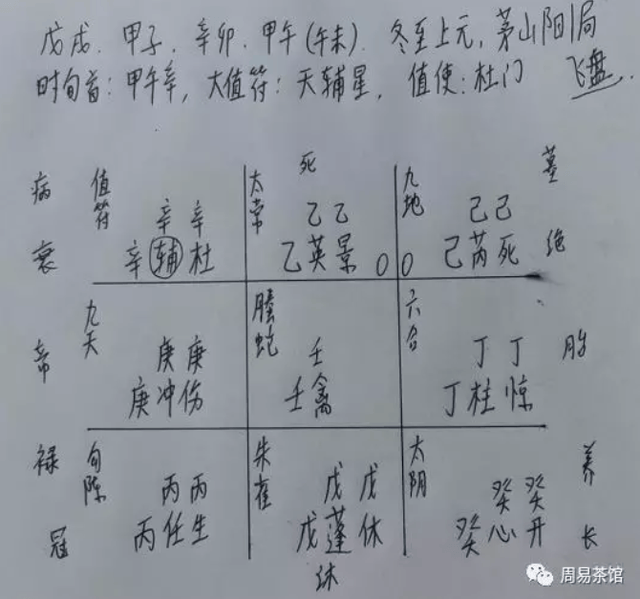 戊戌、甲子、辛卯、甲午(午未)、冬至上元,茅山阳1局
时旬首:甲午辛,大值符:天辅星,值使:杜门 飞盘
死
病 值符 太常 九地 墓
辛辛 乙乙 己己
衰 辛辅杜 乙英景 0 0 己芮死 绝
九天 螣蛇 六合
庚庚 壬 丁丁
帝 庚冲伤 壬禽 丁柱惊 胎
禄 勾陈 朱雀 太阴 养
丙丙 戊戊 癸癸
冠 丙任生 戊蓬休 癸心开 长
沐
周易茶馆